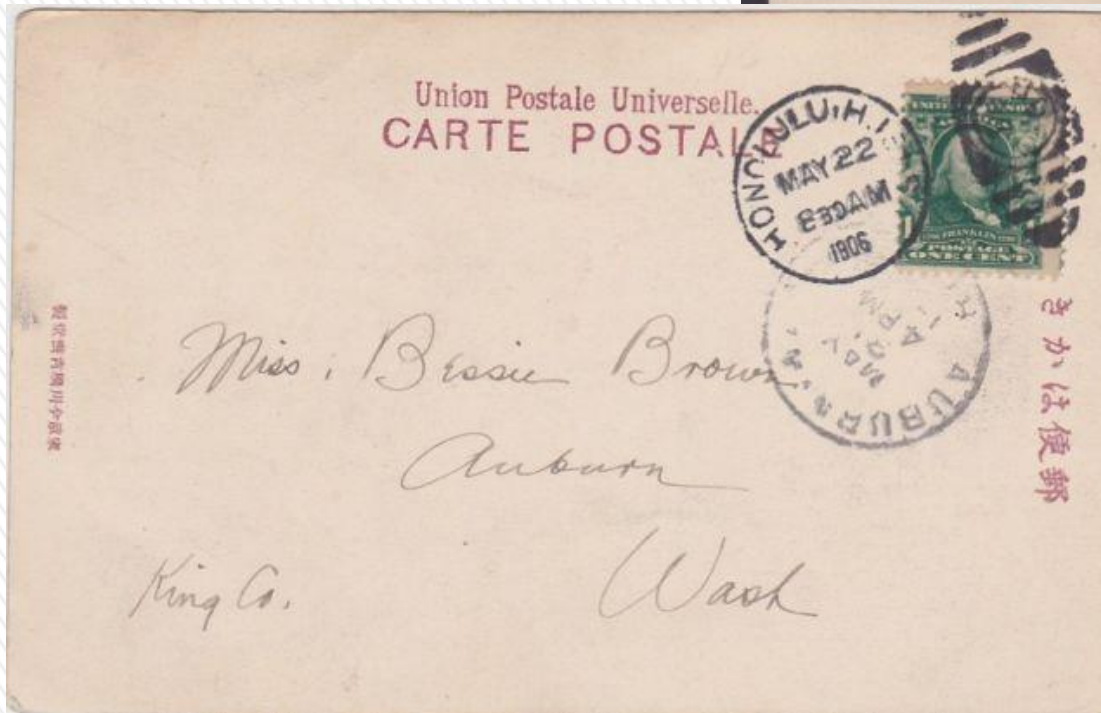 Union Postale Universelle.
CARTE POSTALE
HONOLULU, H.I.
MAY 22
8 30 AM
1906
FRANKLIN
POSTAGE
ONE CENT
AUBURN
MAY
PM
きかは便郵
Miss. Bessie Brown
Auburn
King Co.
Wash